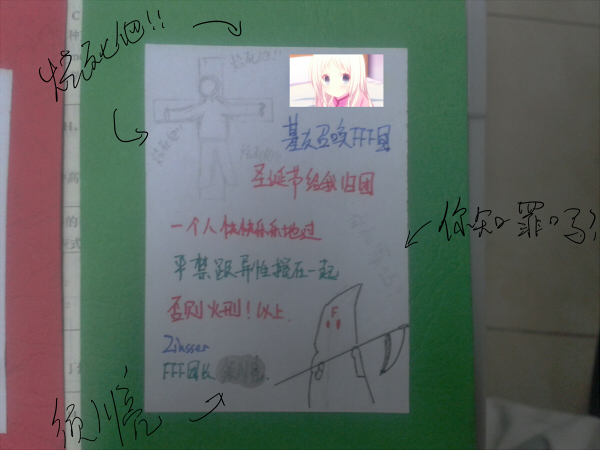 烧死他!!
烧死他!!
基友召唤FFF团
圣诞节给我归团
一个人快快乐乐地过
严禁跟异性搅在一起
否则火刑!以上.
Zinsser
FFF团长
F
你知罪吗?
须川亮